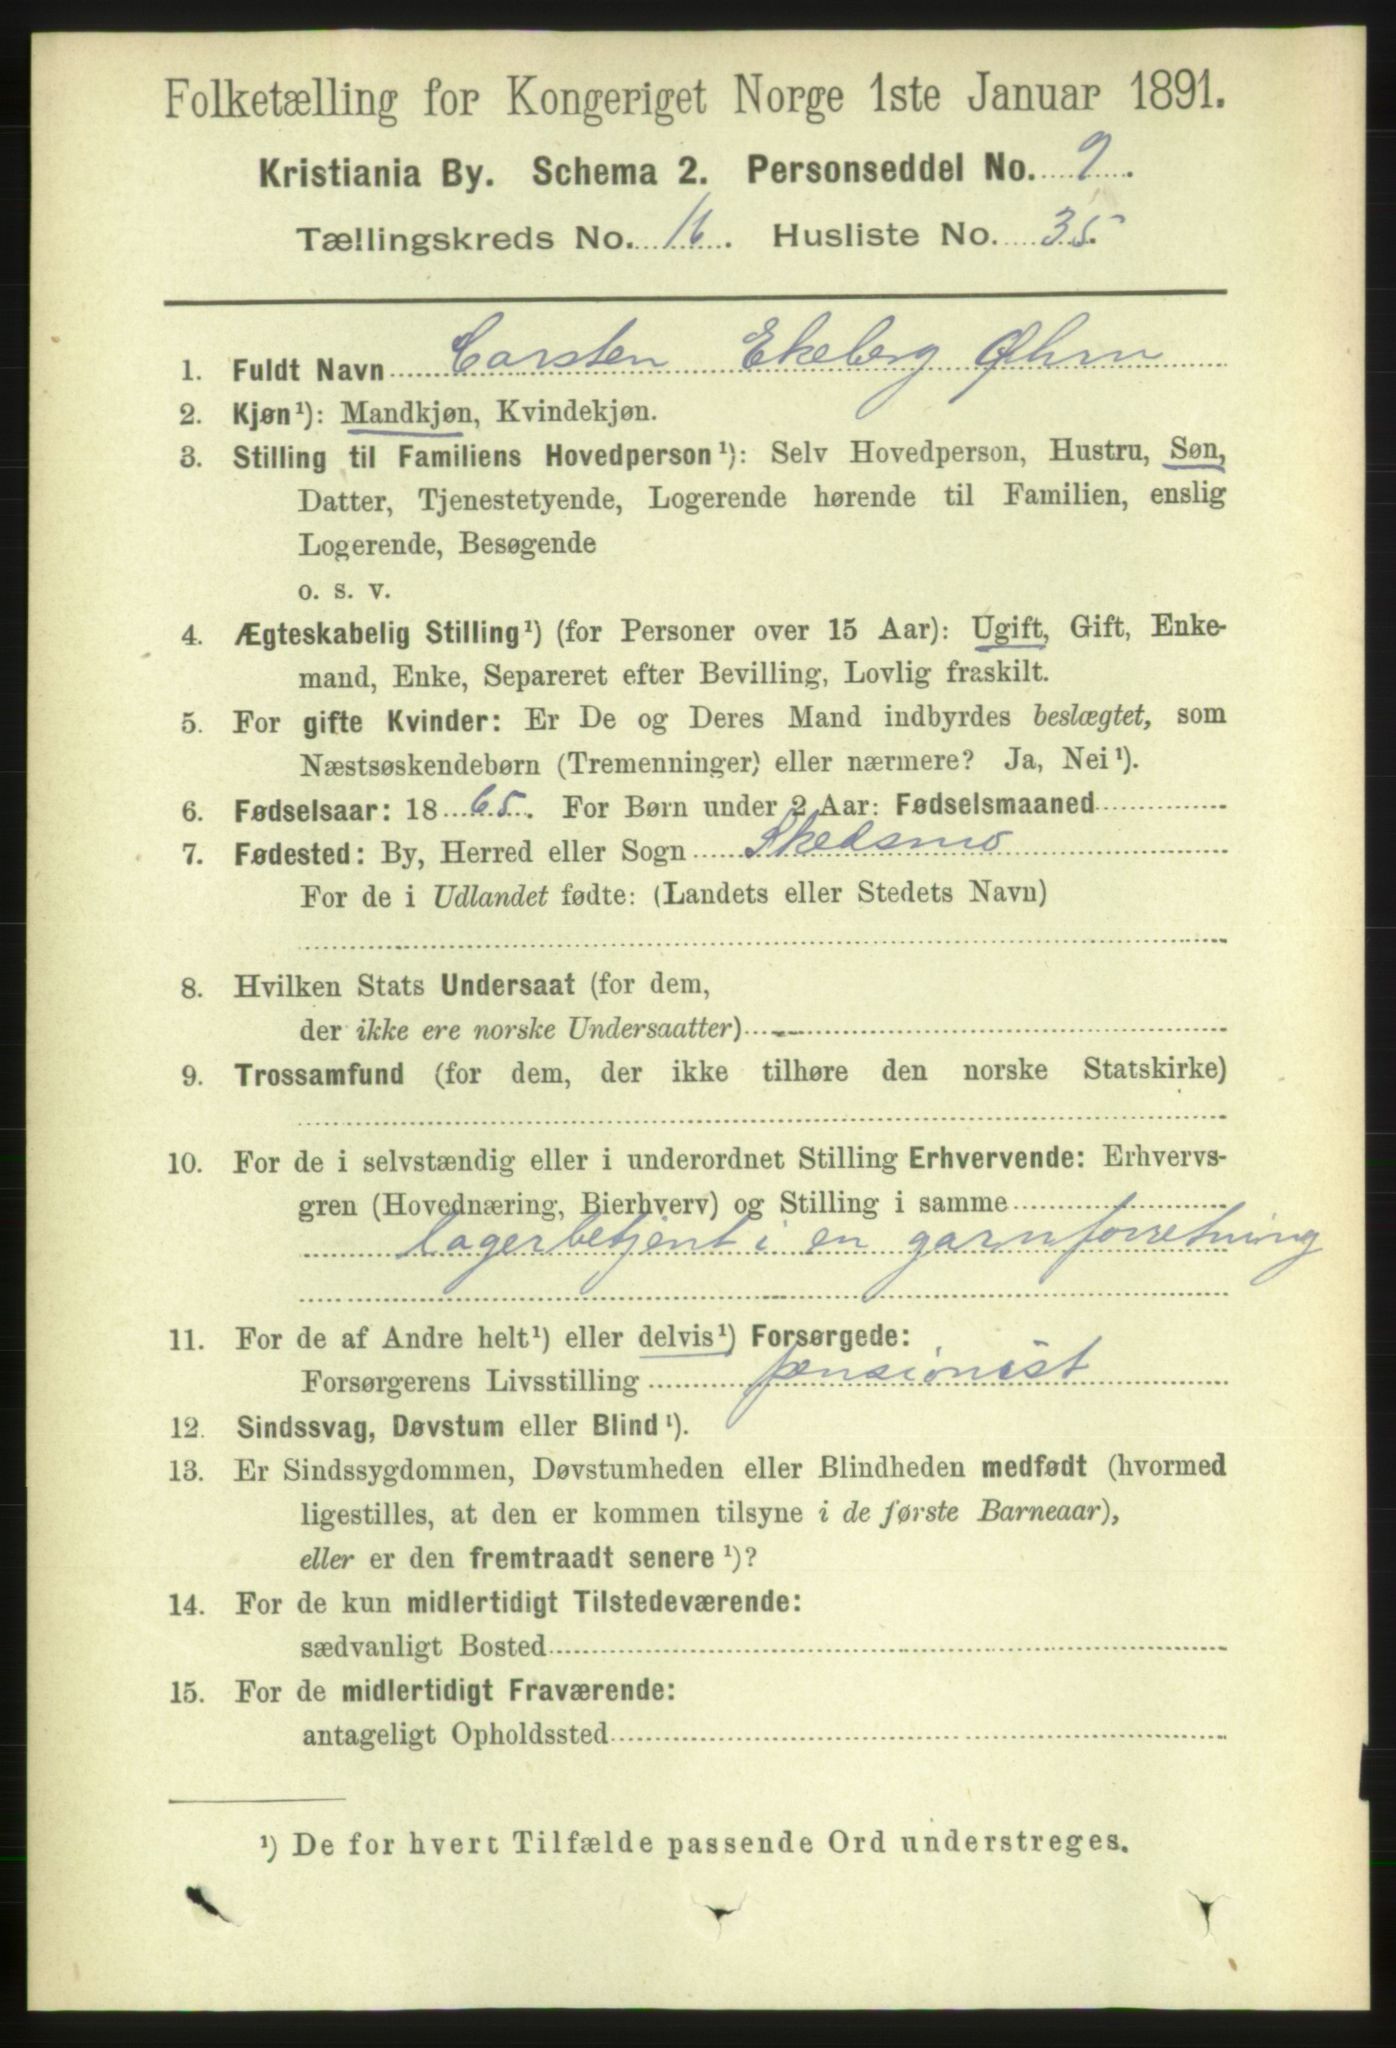 Folketælling for Kongeriget Norge 1ste Januar 1891.
Kristiania By. Schema 2. Personseddel No. 9.
Tællingskreds No. 16. Husliste No. 35.
1. Fuldt Navn Carsten Ekeberg Øhrn
2. Kjøn¹): Mandkjøn, Kvindekjøn.
3. Stilling til Familiens Hovedperson¹): Selv Hovedperson, Hustru, Søn,
Datter, Tjenestetyende, Logerende hørende til Familien, enslig
Logerende, Besøgende
o. s. v.
4. Ægteskabelig Stilling¹) (for Personer over 15 Aar): Ugift, Gift, Enke-
mand, Enke, Separeret efter Bevilling, Lovlig fraskilt.
5. For gifte Kvinder: Er De og Deres Mand indbyrdes beslægtet, som
Næstsøskendebørn (Tremenninger) eller nærmere? Ja, Nei¹).
6. Fødselsaar: 1865. For Børn under 2 Aar: Fødselsmaaned
7. Fødested: By, Herred eller Sogn Skedsmo
For de i Udlandet fødte: (Landets eller Stedets Navn)
8. Hvilken Stats Undersaat (for dem,
der ikke ere norske Undersaatter)
9. Trossamfund (for dem, der ikke tilhøre den norske Statskirke)
10. For de i selvstændig eller i underordnet Stilling Erhvervende: Erhvervs-
gren (Hovednæring, Bierhverv) og Stilling i samme
lagerbetjent i en garnforretning
11. For de af Andre helt¹) eller delvis¹) Forsørgede:
Forsørgerens Livsstilling pensionist
12. Sindssvag, Døvstum eller Blind¹).
13. Er Sindssygdommen, Døvstumheden eller Blindheden medfødt (hvormed
ligestilles, at den er kommen tilsyne i de første Barneaar),
eller er den fremtraadt senere¹)?
14. For de kun midlertidigt Tilstedeværende:
sædvanligt Bosted
15. For de midlertidigt Fraværende:
antageligt Opholdssted
¹) De for hvert Tilfælde passende Ord understreges.